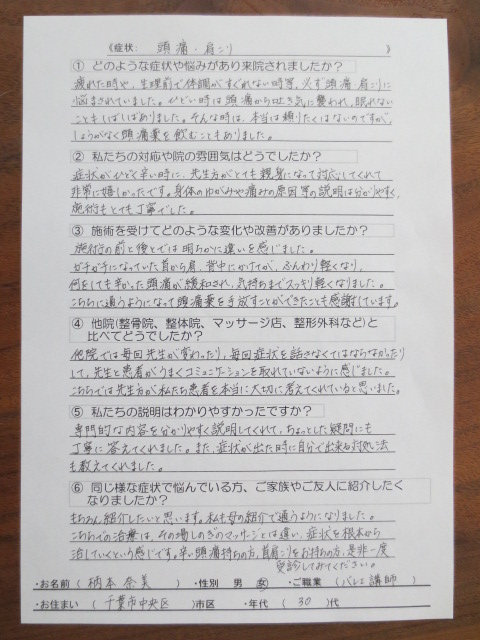 《症状: 頭痛・肩こり 》
① どのような症状や悩みがあり来院されましたか？
疲れた時や、生理前で体調がすぐれない時等、必ず頭痛・肩こりに
悩まされていました。ひどい時は頭痛から吐き気に襲われ、眠れない
こともしばしばありました。そんな時は、本当は頼りたくはないのですが、
しょうがなく頭痛薬を飲むこともありました。
② 私たちの対応や院の雰囲気はどうでしたか？
症状がひどく辛い時に、先生方がとても親身になって対応してくれて
非常に嬉しかったです。身体のゆがみや痛みの原因等の説明は分かりやすく、
施術もとても丁寧でした。
③ 施術を受けてどのような変化や改善がありましたか？
施術の前と後とでは明らかに違いを感じました。
ガチガチになっていた首から肩、背中にかけてが、ふんわり軽くなり、
何をしても辛かった頭痛が緩和され、気持ちまでスッキリ軽くなりました。
こちらに通うようになって頭痛薬を手放すことができたことも感謝しています。
④ 他院(整骨院、整体院、マッサージ店、整形外科など)と
比べてどうでしたか？
他院では毎回先生が変わったり、毎回症状を話さなくてはならなかったり
して、先生と患者がうまくコミュニケーションを取れていないように感じました。
こちらでは先生方が私たち患者を本当に大切に考えてくれていると思いました。
⑤ 私たちの説明はわかりやすかったですか？
専門的な内容を分かりやすく説明してくれて、ちょっとした疑問にも
丁寧に答えてくれました。また、症状が出た時に自分で出来る対処法
も教えてくれました。
⑥ 同じ様な症状で悩んでいる方、ご家族やご友人に紹介したく
なりましたか？
もちろん紹介したいと思います。私も母の紹介で通うようになりました。
こちらでの治療は、その場しのぎのマッサージとは違い、症状を根本から
治していくという感じです。辛い頭痛持ちの方、首肩こりをお持ちの方、是非一度
受診してみてください。
・お名前 ( 柄本 奈美 ) ・性別 男 女 ・ご職業 ( バレエ講師 )
・お住まい ( 千葉市中央区 )市区 ・年代 ( 30 )代